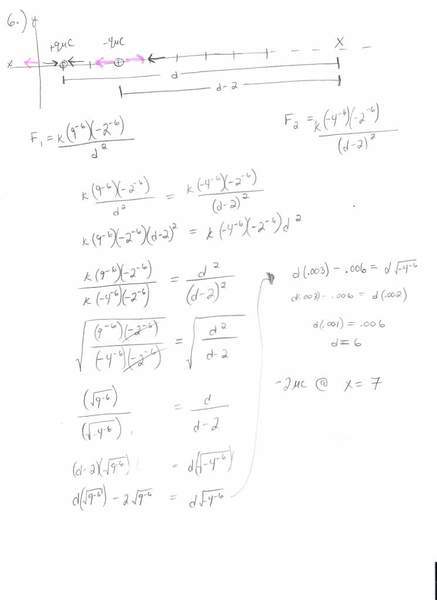 6.) y
+9μC -4μC X
x
d
d-2
F₁ = k(9⁻⁶)(-2⁻⁶) / d²
F₂ = k(-4⁻⁶)(-2⁻⁶) / (d-2)²
k(9⁻⁶)(-2⁻⁶) / d² = k(-4⁻⁶)(-2⁻⁶) / (d-2)²
k(9⁻⁶)(-2⁻⁶)(d-2)² = k(-4⁻⁶)(-2⁻⁶)d²
k(9⁻⁶)(-2⁻⁶) / k(-4⁻⁶)(-2⁻⁶) = d² / (d-2)²
√((9⁻⁶)(-2⁻⁶) / (-4⁻⁶)(-2⁻⁶)) = √(d² / d-2)
(√9⁻⁶) / (√-4⁻⁶) = d / d-2
(d-2)(√9⁻⁶) = d(√-4⁻⁶)
d(√9⁻⁶) - 2√9⁻⁶ = d√-4⁻⁶
d(.003) - .006 = d√-4⁻⁶
d(.003) - .006 = d(.002)
d(.001) = .006
d = 6
-2μC @ x = 7